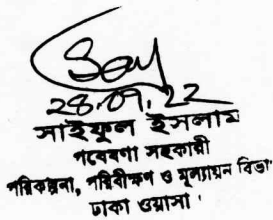 28.09.22
সাইফুল ইসলাম
গবেষণা সহকারী
পরিকল্পনা, পরিবীক্ষণ ও মূল্যায়ন বিভা
ঢাকা ওয়াসা